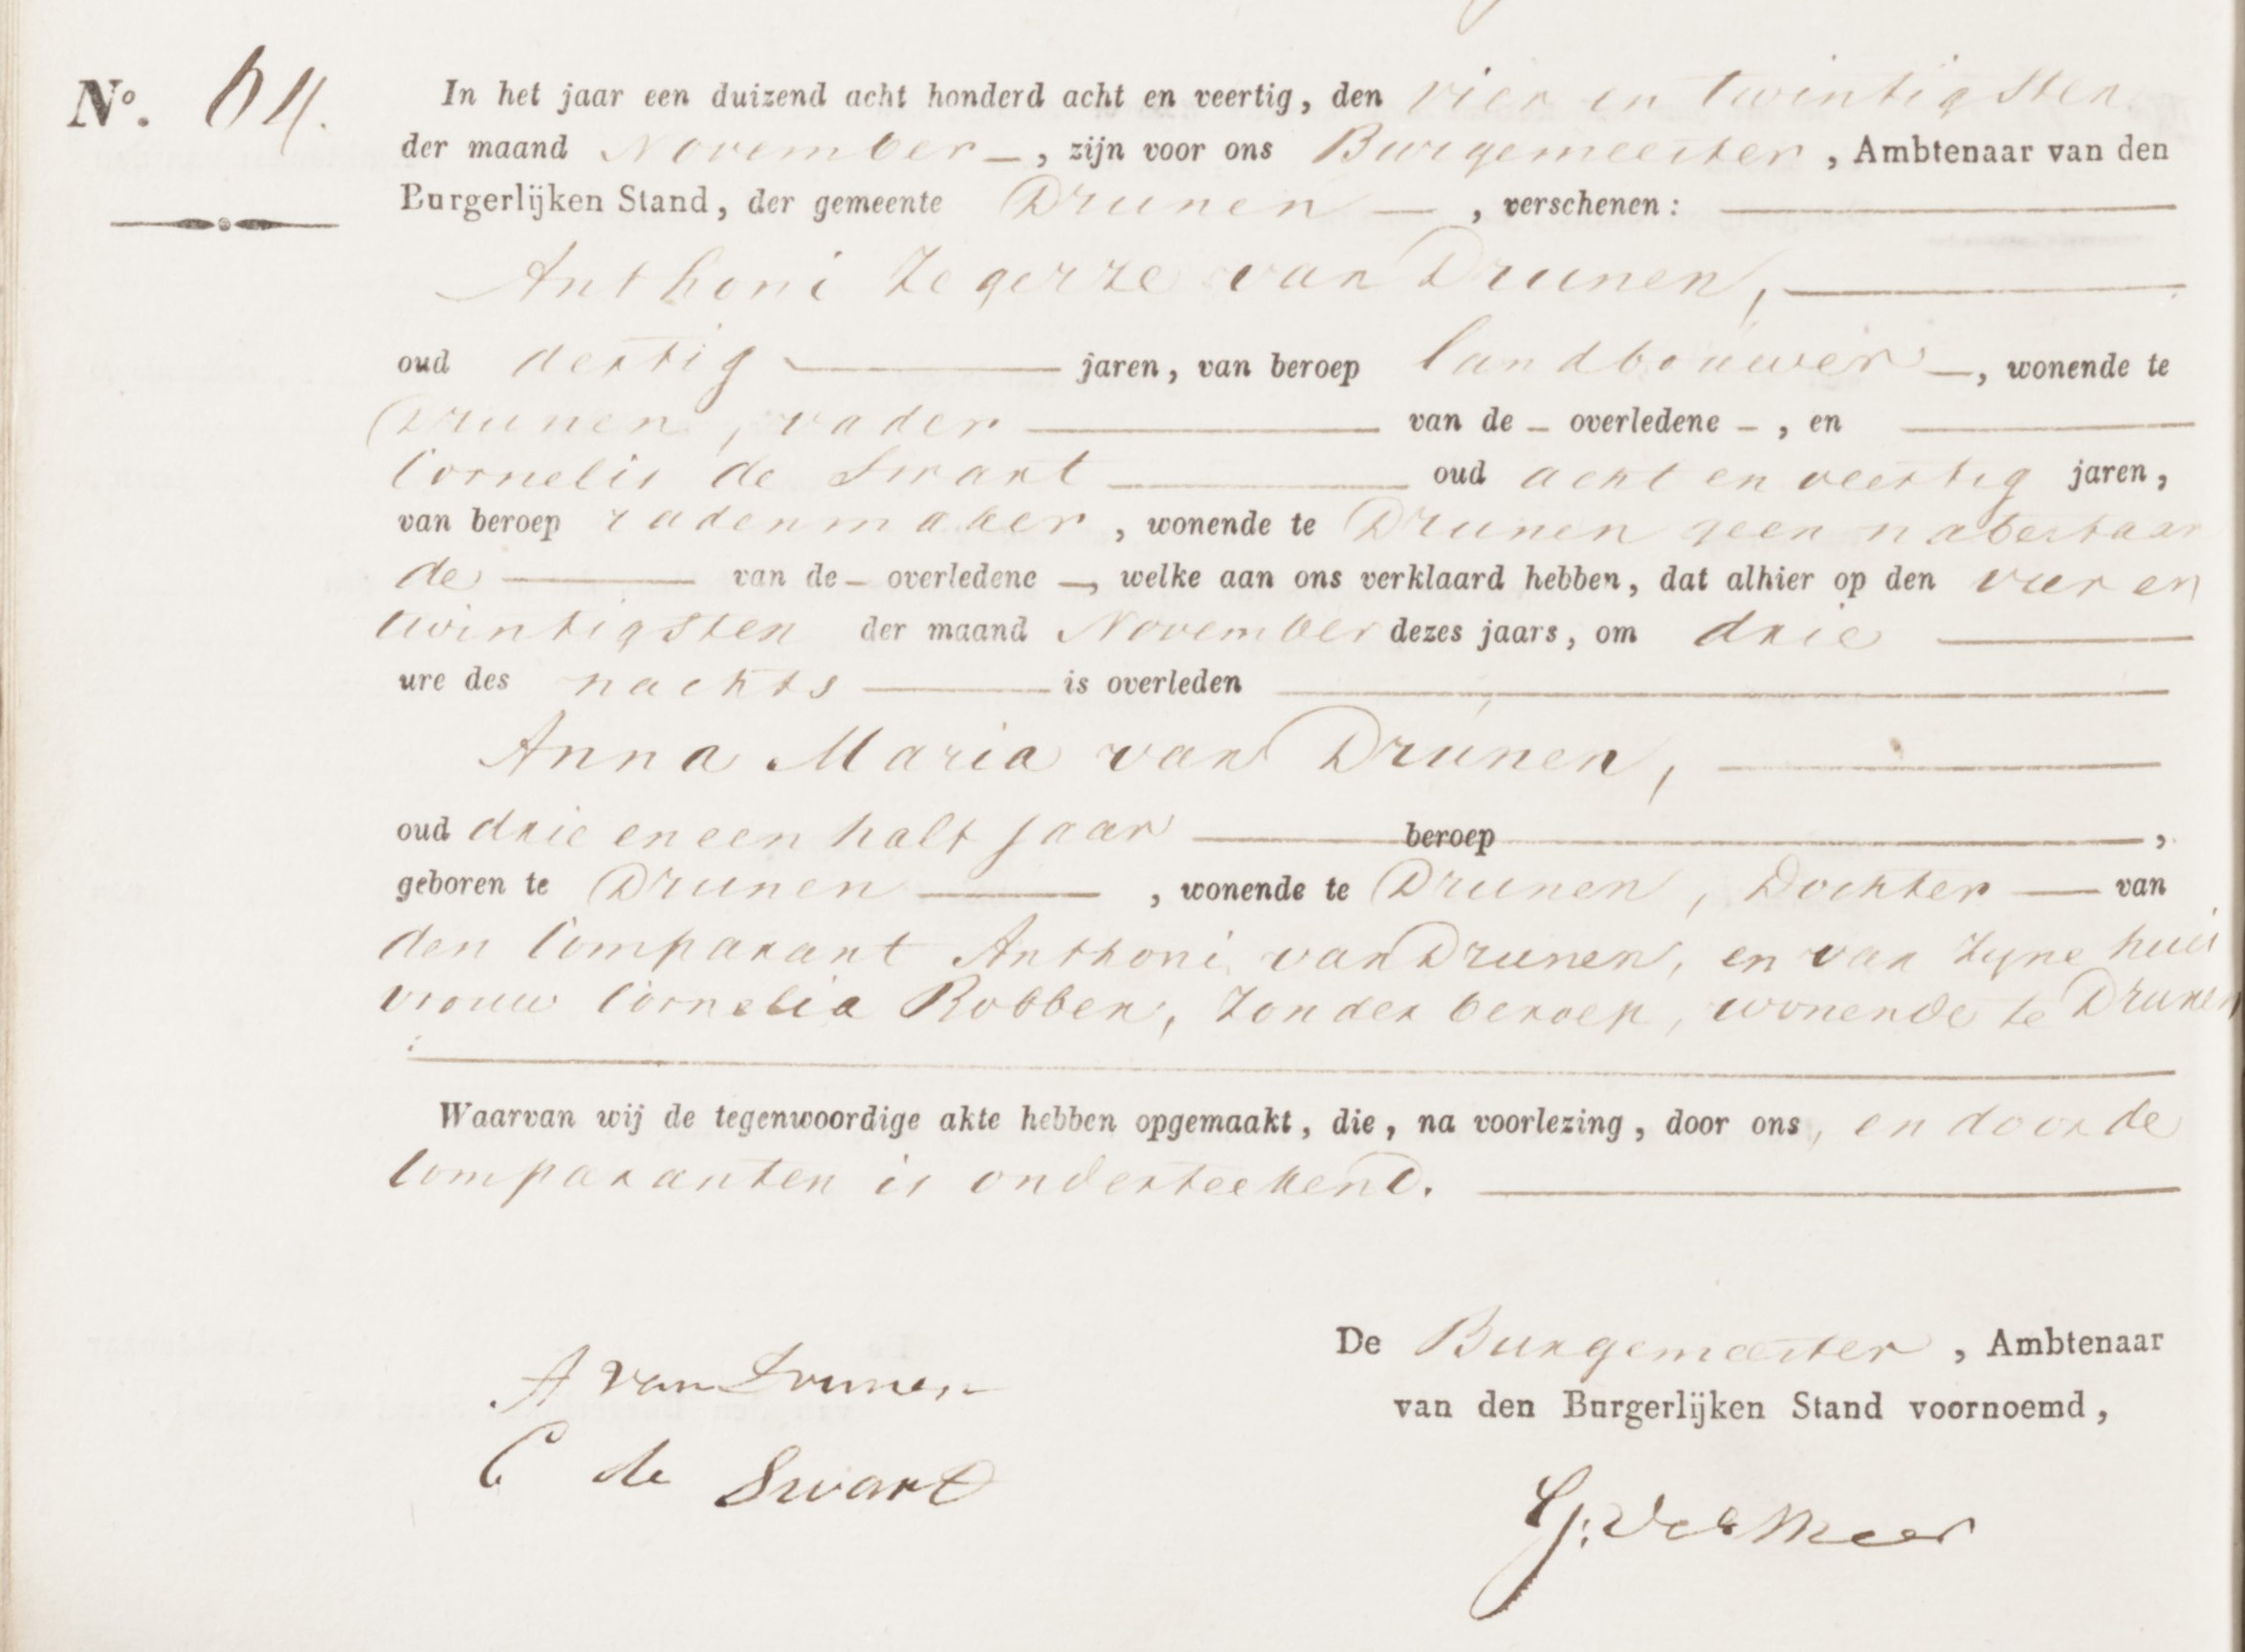 No. 64.
In het jaar een duizend acht honderd acht en veertig, den vier en twintigsten
der maand November —, zijn voor ons Burgemeester, Ambtenaar van den
Burgerlijken Stand, der gemeente Drunen —, verschenen:
Anthoni Zegerze van Drunen,
oud dertig jaren, van beroep landbouwer —, wonende te
Drunen, vader van de – overledene –, en
Cornelis de Swart oud acht en veertig jaren,
van beroep radenmaker, wonende te Drunen geen nabestaan
de van de – overledene —, welke aan ons verklaard hebben, dat alhier op den vier en
twintigsten der maand November dezes jaars, om drie
ure des nachts is overleden
Anna Maria van Drunen,
oud drie en een half jaar beroep ,
geboren te Drunen , wonende te Drunen, Dochter — van
den Comparant Anthoni van Drunen, en van zyne huis
vrouw Cornelia Robben, zonder beroep, wonende te Drunen
Waarvan wij de tegenwoordige akte hebben opgemaakt, die, na voorlezing, door ons, en door de
Comparanten is onderteekend.
De Burgemeester, Ambtenaar
van den Burgerlijken Stand voornoemd,
A van Drunen
C de Swart